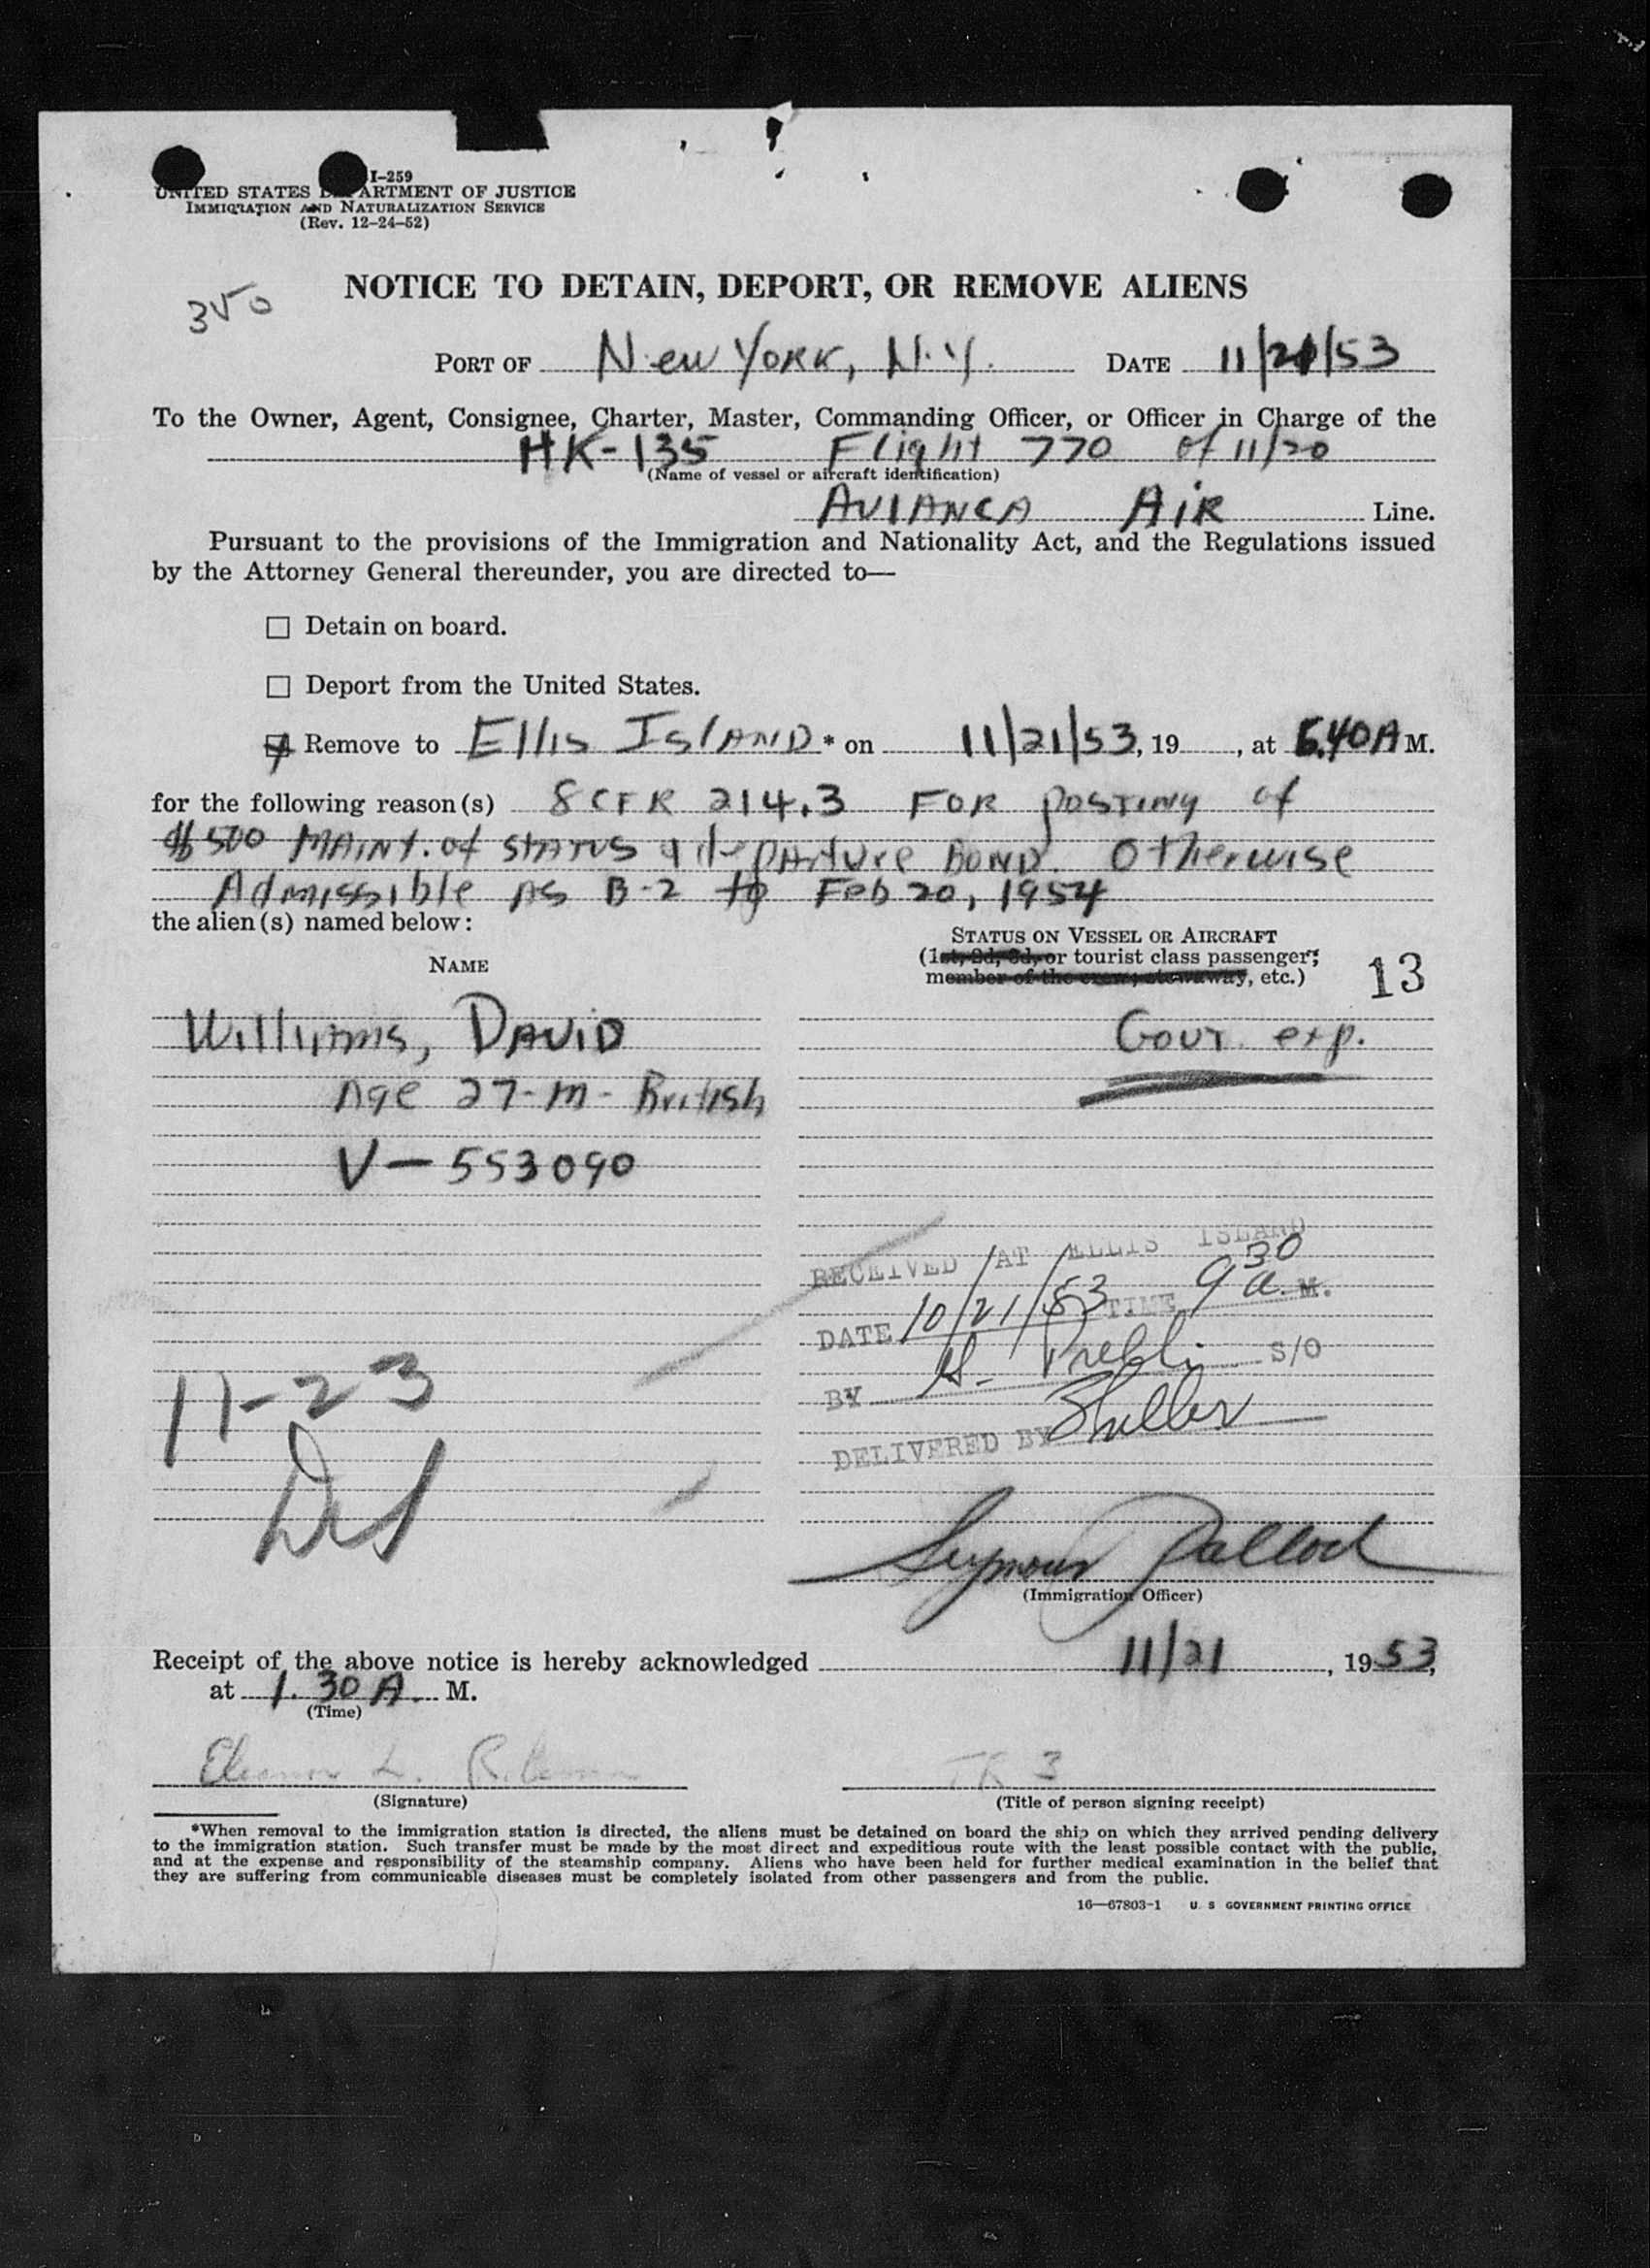 I-259
UNITED STATES DEPARTMENT OF JUSTICE
IMMIGRATION AND NATURALIZATION SERVICE
(Rev. 12-24-52)
350
NOTICE TO DETAIN, DEPORT, OR REMOVE ALIENS
PORT OF New York, N.Y. DATE 11/21/53
To the Owner, Agent, Consignee, Charter, Master, Commanding Officer, or Officer in Charge of the
HK-135 Flight 770 of 11/20
(Name of vessel or aircraft identification)
AVIANCA AIR Line.
Pursuant to the provisions of the Immigration and Nationality Act, and the Regulations issued
by the Attorney General thereunder, you are directed to—
Detain on board.
Deport from the United States.
Remove to Ellis Island * on 11/21/53, 19 , at 5.40 A M.
for the following reason(s) 8 CFR 214.3 For posting of
$500 Maint. of status & departure bond. Otherwise
Admissible as B-2 to Feb 20, 1954
the alien(s) named below:
NAME
STATUS ON VESSEL OR AIRCRAFT
(1st, 2d, 3d, or tourist class passenger;
member of the crew; stowaway, etc.)
13
Williams, David
Govt. exp.
Age 27-M-British
V-553090
RECEIVED AT ELLIS ISLAND
DATE 10/21/53 TIME 9 30 a. M.
BY H. S/O
DELIVERED BY
11-23
Seymour
(Immigration Officer)
Receipt of the above notice is hereby acknowledged 11/21, 1953,
at 1.30 A. M.
(Time)
Eleanor L.
(Signature)
(Title of person signing receipt)
*When removal to the immigration station is directed, the aliens must be detained on board the ship on which they arrived pending delivery
to the immigration station. Such transfer must be made by the most direct and expeditious route with the least possible contact with the public,
and at the expense and responsibility of the steamship company. Aliens who have been held for further medical examination in the belief that
they are suffering from communicable diseases must be completely isolated from other passengers and from the public.
16—67803-1 U. S. GOVERNMENT PRINTING OFFICE